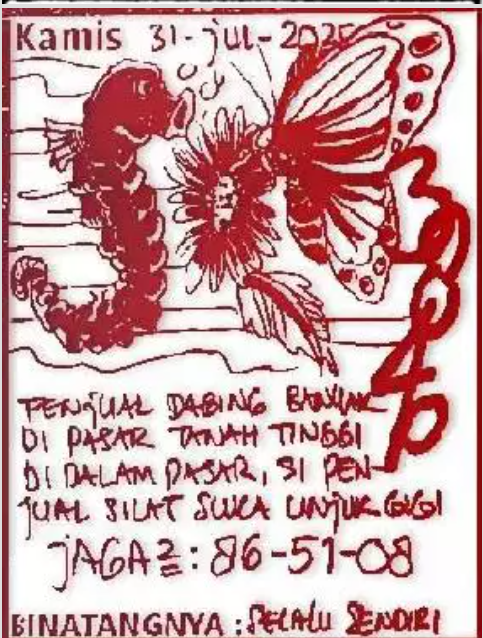 Kamis 31-jul-2025
PENjUAL DAGING BANYAK
DI PASAR TANAH TINGGI
DI DALAM PASAR, SI PEN-
jUAL SILAT SUKA UNjUK GIGI
jAGA2: 86-51-08
BINATANGNYA: SELALU SENDIRI